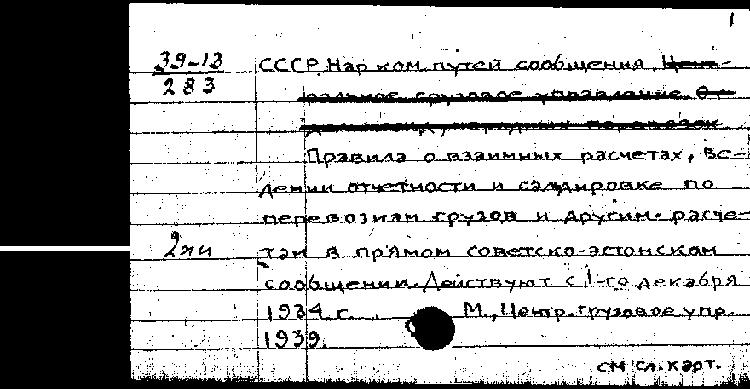 1
39-13
283
СССР. Нар. ком. путей сообщения. Цент-
ральное грузовое управление. О-
перевозок
Правила о взаимных расчетах, ве-
дении отчетности и сальдировке по
перевозкам грузов и другим расче-
2 жи
там в прямом советско-эстонском
сообщении. Действуют с 1-го декабря
1934 г. М., Центр. грузовое упр.
1939.
см сл. карт.